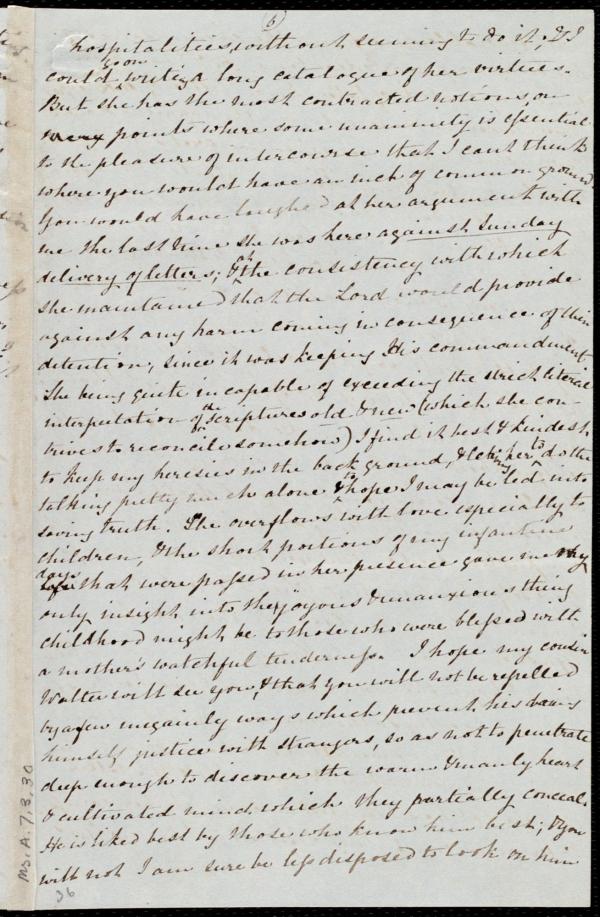 (6)
hospitalities, without seeming to do it; & I
could soon write a long catalogue of her virtues.
But she has the most contracted notions, on
points where some unanimity is essential
to the pleasure of intercourse that I can't think
where you would have an inch of common ground.
You would have laughed at her argument with
me the last time she was here against Sunday
delivery of letters; & at the consistency with which
she maintained that the Lord would provide
against any harm coming in consequence of their
detention, since it was keeping His commandment.
She being quite incapable of exceeding the strict literal
interpretation of the Scriptures old & new (which she con-
trives to reconcile somehow) I find it best & kindest
to keep my heresies in the back ground, & letting her to do the
talking pretty much alone & to hope I may be led into
saving truth. She overflows with love especially to
children, & the short portions of my infantine
days that were passed in her presence gave me my
only insight into the joyous & unanxious thing
childhood might be to those who were blessed with
a mother's watchful tenderness. I hope my cousin
Walter will see you, & that you will not be repelled
by a few ungainly ways which prevent his doing
himself justice with strangers, so as not to penetrate
deep enough to discover the warm & manly heart
& cultivated mind which they partially conceal.
He is liked best by those who know him best; & you
will not I am sure be less disposed to look on him
Ms. A. 7. 3. 30
36